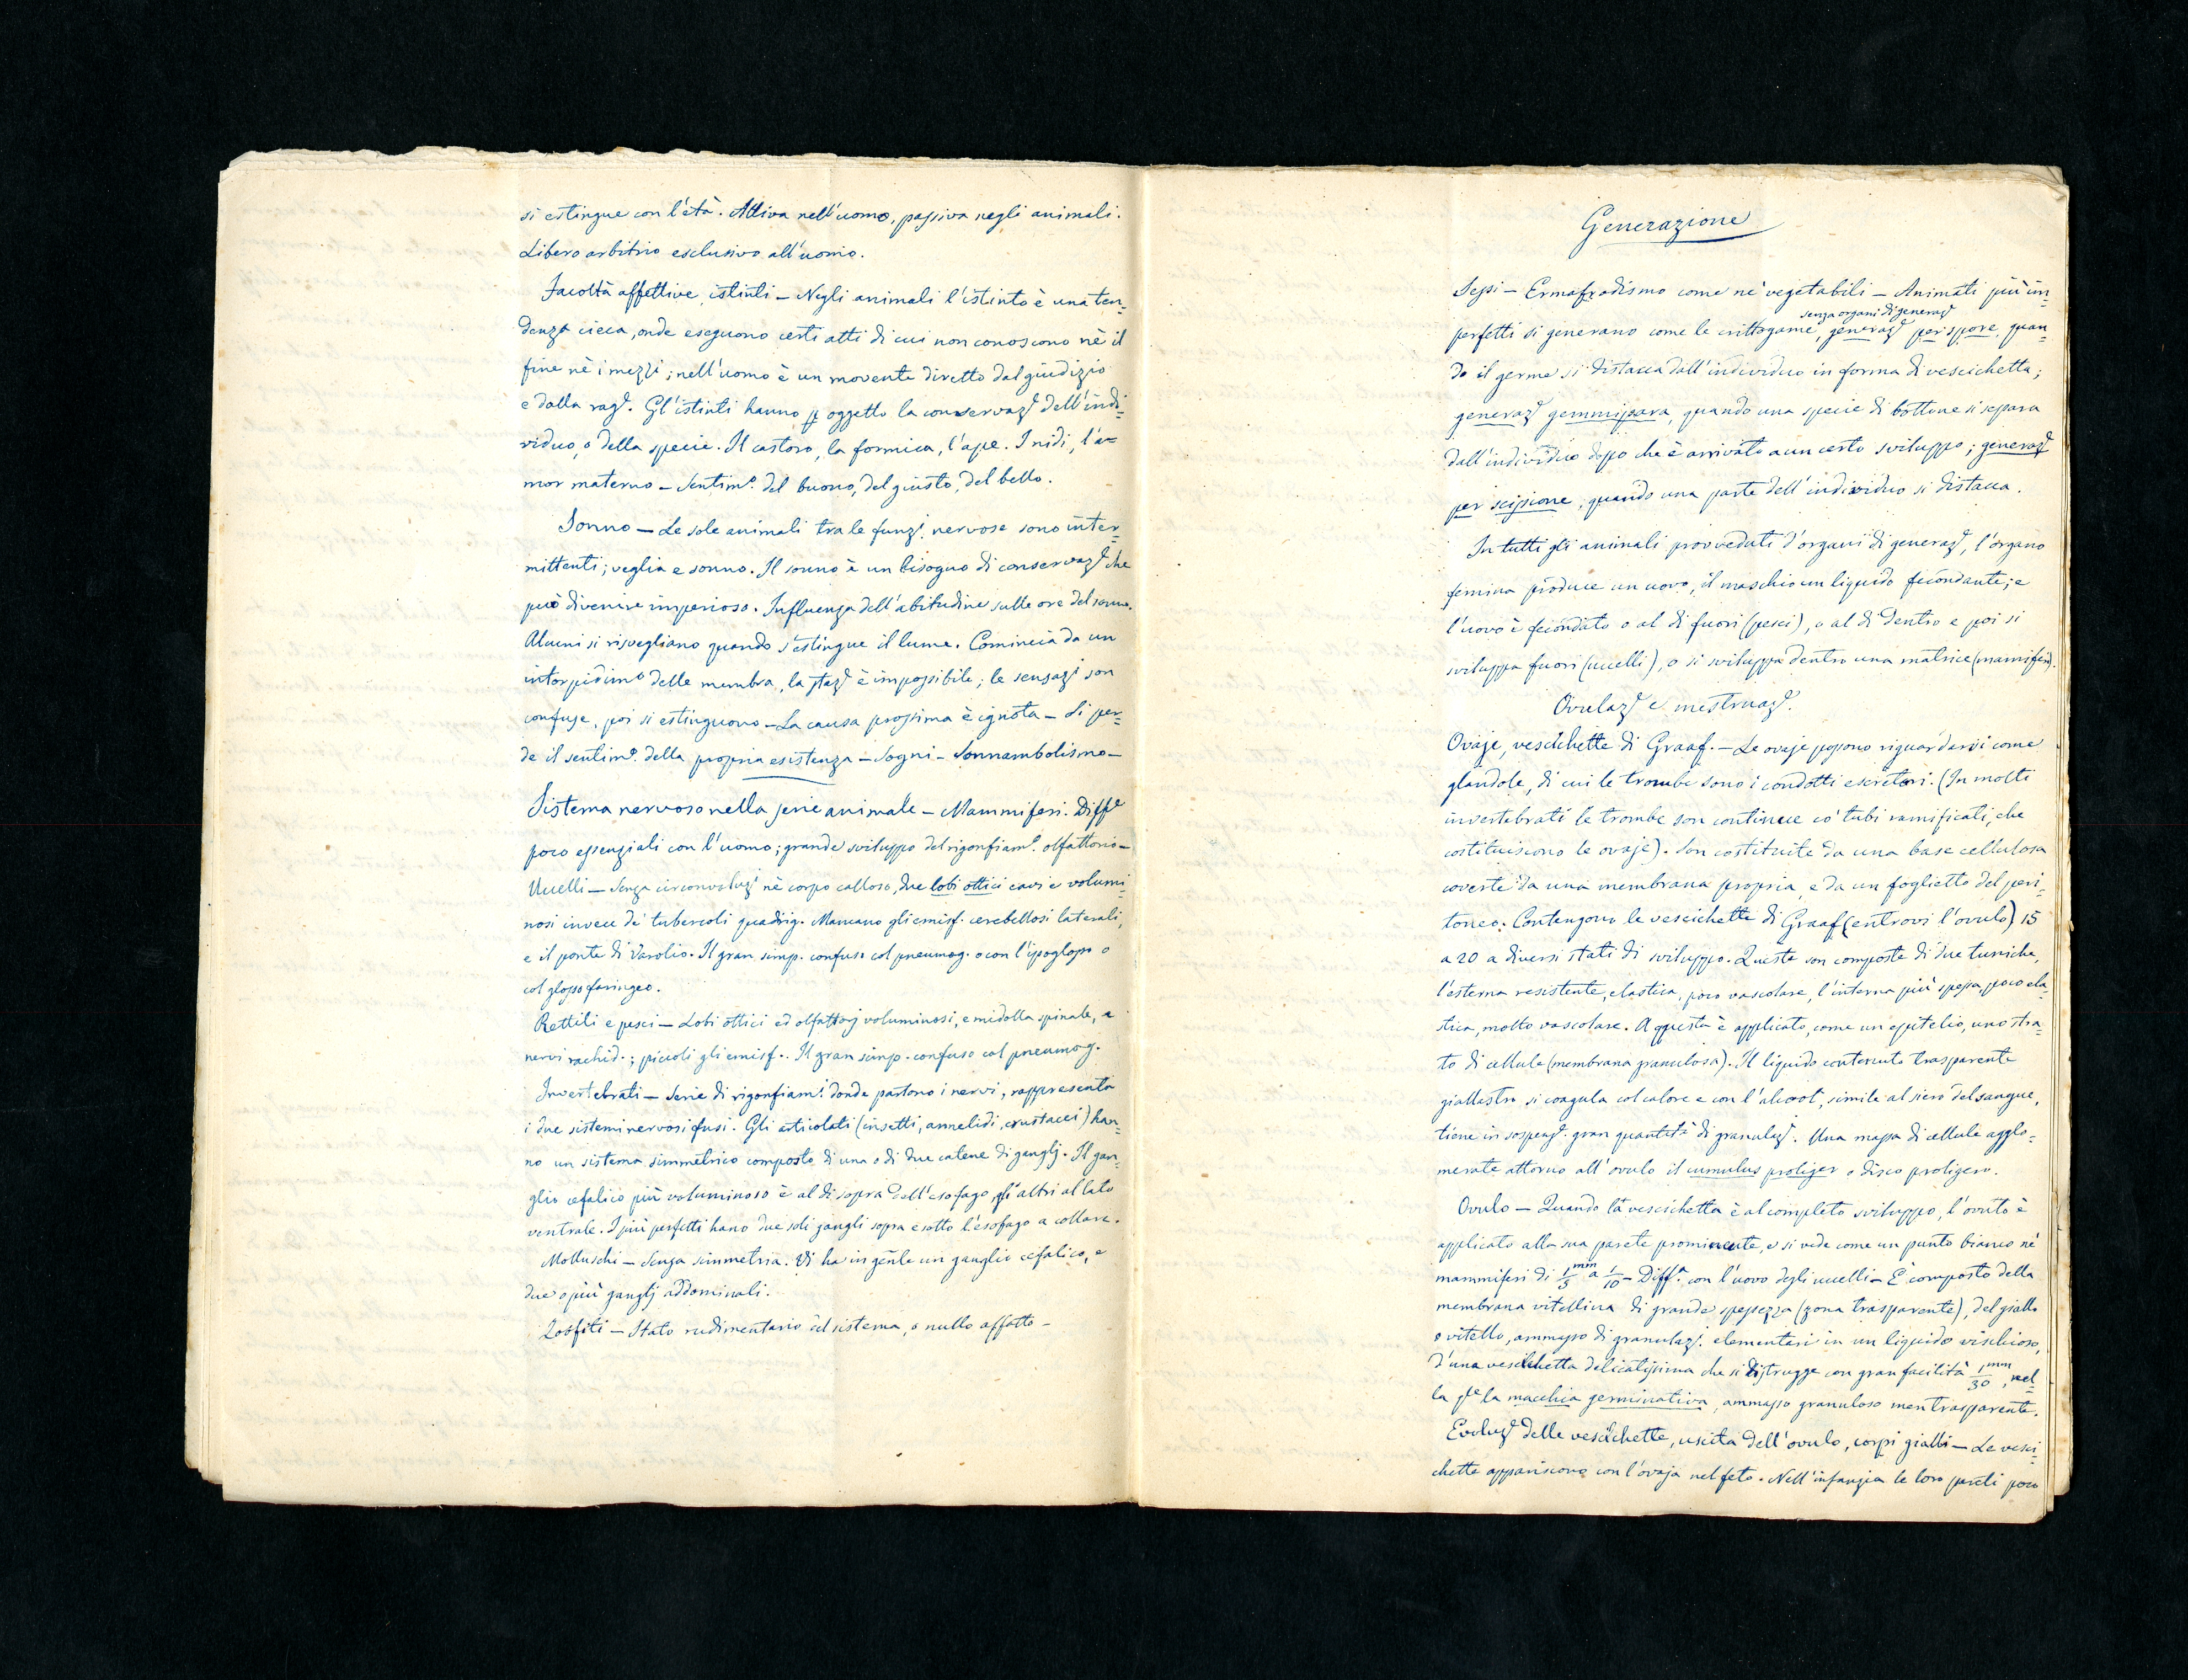 si estingue con l'età. Attiva nell'uomo, passiva negli animali.
Libero arbitrio esclusivo all'uomo.
Facoltà affettive, istinti — Negli animali l'istinto è una ten=
denza cieca, onde eseguono certi atti di cui non conoscono nè il
fine nè i mezzi; nell'uomo è un movente diretto dal giudizio
e dalla rage. Gl'istinti hanno p oggetto la conservaze dell'indi=
viduo, o della specie. Il castoro, la formica, l'ape. I nidi, l'a=
mor materno — Sentimo. del buono, del giusto, del bello.
Sonno — Le sole animali tra le funzi. nervose sono inter=
mittenti; veglia e sonno. Il sonno è un bisogno di conservaze che
può divenire imperioso. Influenza dell'abitudine sulle ore del sonno.
Alcuni si risvegliano quando s'estingue il lume. Comincia da un
intorpidimo delle membra, la staze è impossibile; le sensazi son
confuse, poi si estinguono — La causa prossima è ignota — Si per=
de il sentimo. della propria esistenza — Sogni — Sonnambolismo —
Sistema nervoso nella serie animale — Mammiferi. Diffe
poco essenziali con l'uomo; grande sviluppo del rigonfiamo. olfattorio —
Uccelli — Senza circonvoluzi nè corpo calloso, due lobi ottici cavi e volumi=
nosi invece de' tubercoli quadrig. Mancano gli emisf. cerebellosi laterali,
e il ponte di Varolio. Il gran simp. confuso col pneumog. o con l'ipoglosso o
col glossofaringeo.
Rettili e pesci — Lobi ottici ed olfattorj voluminosi, e midolla spinale, e
nervi rachid.; piccoli gli emisf.. Il gran simp. confuso col pneumog.
Invertebrati — Serie di rigonfiami. donde partono i nervi, rappresenta
i due sistemi nervosi fusi. Gli articolati (insetti, annelidi, crustacei) han=
no un sistema simmetrico composto di una o di due catene di ganglj. Il gan=
glio cefalico più voluminoso è al di sopra dell'esofago, gli altri al lato
ventrale. I più perfetti hano due soli gangli sopra e sotto l'esofago a collare.
Molluschi — Senza simmetria. Vi ha in genle un ganglio cefalico, e
due o più ganglj addominali.
Zoofiti — Stato rudimentario del sistema, o nullo affatto —
Generazione
Sessi — Ermafrodismo come ne' vegetabili — Animali più im=
senza organi di generaze
perfetti si generano come le crittogame, generaze per spore, quan=
do il germe si distacca dall'individuo in forma di vescichetta;
generaze gemmipara, quando una specie di bottone si separa
dall'individuo dopo che è arrivato a un certo sviluppo; generaze
per scissione, quando una parte dell'individuo si distacca.
In tutti gli animali provveduti d'organi di generaze, l'organo
femina produce un uovo, il maschio un liquido fecondante; e
l'uovo è fecondato o al di fuori (pesci), o al di dentro e poi si
sviluppa fuori (uccelli), o si sviluppa dentro una matrice (mamiferi).
Ovulaze e mestruaze.
Ovaje, vescichette di Graaf. — Le ovaje possono riguardarsi come
glandole, di cui le trombe sono i condotti escretori. (In molti
invertebrati le trombe son continue co' tubi ramificati, che
costituiscono le ovaje). Son costituite da una base cellulosa
coverte da una membrana propria, e da un foglietto del peri=
toneo. Contengono le vescichette di Graaf (entrovi l'ovulo) 15
a 20 a diversi stati di sviluppo. Queste son composte di due tuniche,
l'esterna resistente, elastica, poco vascolare, l'interna più spessa, poco ela=
stica, molto vascolare. A questa è applicato, come un epitelio, uno stra=
to di cellule (membrana granulosa). Il liquido contenuto trasparente
giallastro si coagula col calore e con l'alcool, simile al siero del sangue,
tiene in sospenze. gran quantità di granulazi. Una massa di cellule agglo=
merate attorno all'ovulo il cumulus proliger o disco proligero.
Ovulo — Quando la vescichetta è al completo sviluppo, l'ovulo è
applicato alla sua parete prominente, e si vede come un punto bianco ne'
mammiferi di 1/5 mm a 1/10 — Diffa. con l'uovo degli uccelli — È composto della
membrana vitellina di grande spessezza (zona trasparente), del giallo
o vitello, ammasso di granulazi. elementari in un liquido vischioso,
d'una vescichetta delicatissima che si distrugge con gran facilità 1/30 mm, nel=
la qle la macchia germinativa, ammasso granuloso men trasparente.
Evoluze delle vescichette, uscita dell'ovulo, corpi gialli — Le vesci=
chette appariscono con l'ovaja nel feto. Nell'infanzia le loro pareti poco